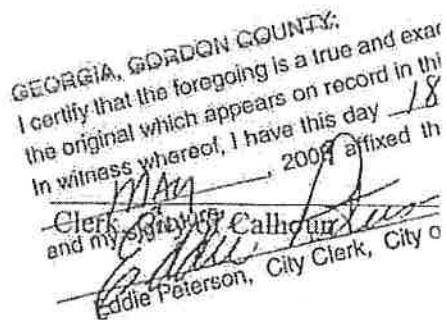 GEORGIA, GORDON COUNTY;
I certify that the foregoing is a true and exac
the original which appears on record in thi
In witness whereof, I have this day 18
MAY, 2009 affixed th
Clerk, City of Calhoun
and my signature
Eddie Peterson, City Clerk, City o